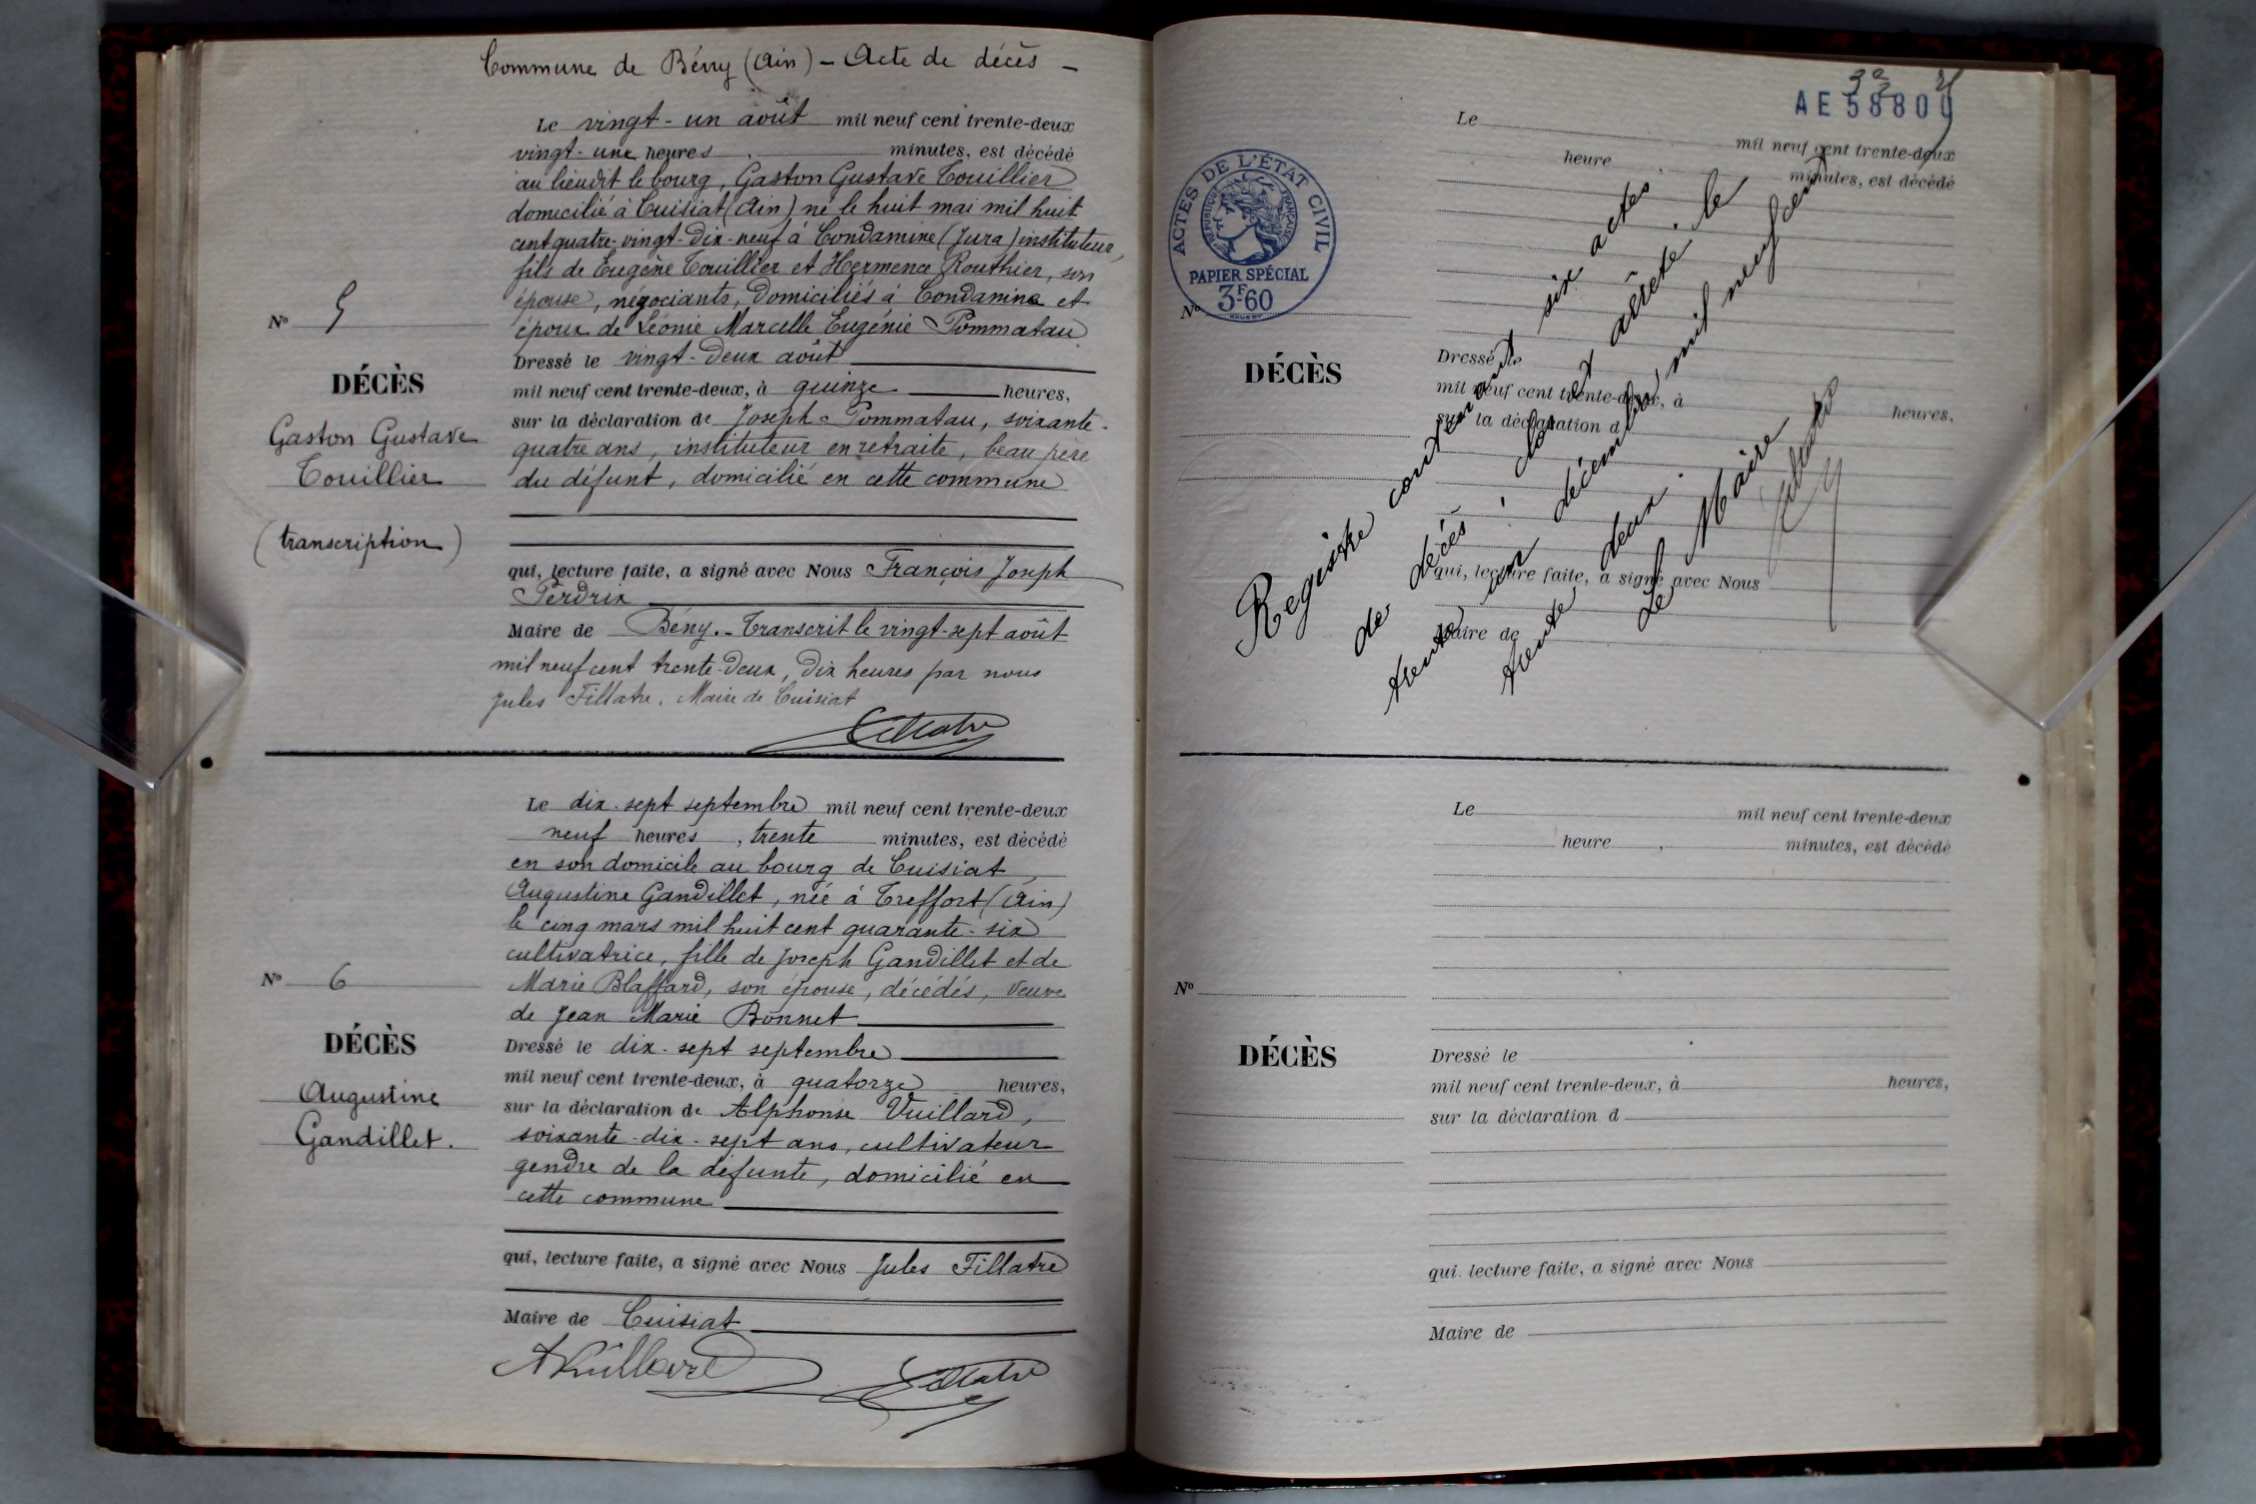 Commune de Bény (Ain) - Acte de décès -
Le vingt-un août mil neuf cent trente-deux
vingt-une heures, minutes, est décédé
au lieudit le bourg, Gaston Gustave Touillier
domicilié à Cuisiat (Ain) né le huit mai mil huit
cent quatre-vingt-dix-neuf à Condamine (Jura) instituteur,
fils de Eugène Touillier et Hermence Routhier, son
épouse, négociants, domiciliés à Condamine et
époux de Léonie Marcelle Eugénie Pommatau
Dressé le vingt-deux août
mil neuf cent trente-deux, à quinze heures,
sur la déclaration de Joseph Pommatau, soixante-
quatre ans, instituteur en retraite, beau père
du défunt, domicilié en cette commune
qui, lecture faite, a signé avec Nous François Joseph
Perdrix
Maire de Bény. - Transcrit le vingt-sept août
mil neuf cent trente-deux, dix heures par nous
Jules Fillatre, Maire de Cuisiat
Fillatre
No 5
DÉCÈS
Gaston Gustave
Touillier
(transcription)
Le dix-sept septembre mil neuf cent trente-deux
neuf heures, trente minutes, est décédé
en son domicile au bourg de Cuisiat,
Augustine Gandillet, née à Treffort (Ain)
le cinq mars mil huit cent quarante-six
cultivatrice, fille de Joseph Gandillet et de
Marie Blaffard, son épouse, décédés, veuve
de Jean Marie Bonnet
Dressé le dix-sept septembre
mil neuf cent trente-deux, à quatorze heures,
sur la déclaration de Alphonse Vuillard,
soixante-dix-sept ans, cultivateur
gendre de la défunte, domicilié en
cette commune
qui, lecture faite, a signé avec Nous Jules Fillatre
Maire de Cuisiat
AVuillard Fillatre
No 6
DÉCÈS
Augustine
Gandillet.
AE 58800
ACTES DE L'ÉTAT CIVIL
RÉPUBLIQUE FRANÇAISE
PAPIER SPÉCIAL
3F60
Le mil neuf cent trente-deux
heure, minutes, est décédé
No
DÉCÈS
Dressé le
mil neuf cent trente-deux, à heures,
sur la déclaration d
qui, lecture faite, a signé avec Nous
Maire de
Registre contenant six actes
de décès, clos et arrêté le
trente un décembre mil neuf cent
trente deux.
Le Maire
Fillatre
Le mil neuf cent trente-deux
heure, minutes, est décédé
No
DÉCÈS
Dressé le
mil neuf cent trente-deux, à heures,
sur la déclaration d
qui, lecture faite, a signé avec Nous
Maire de